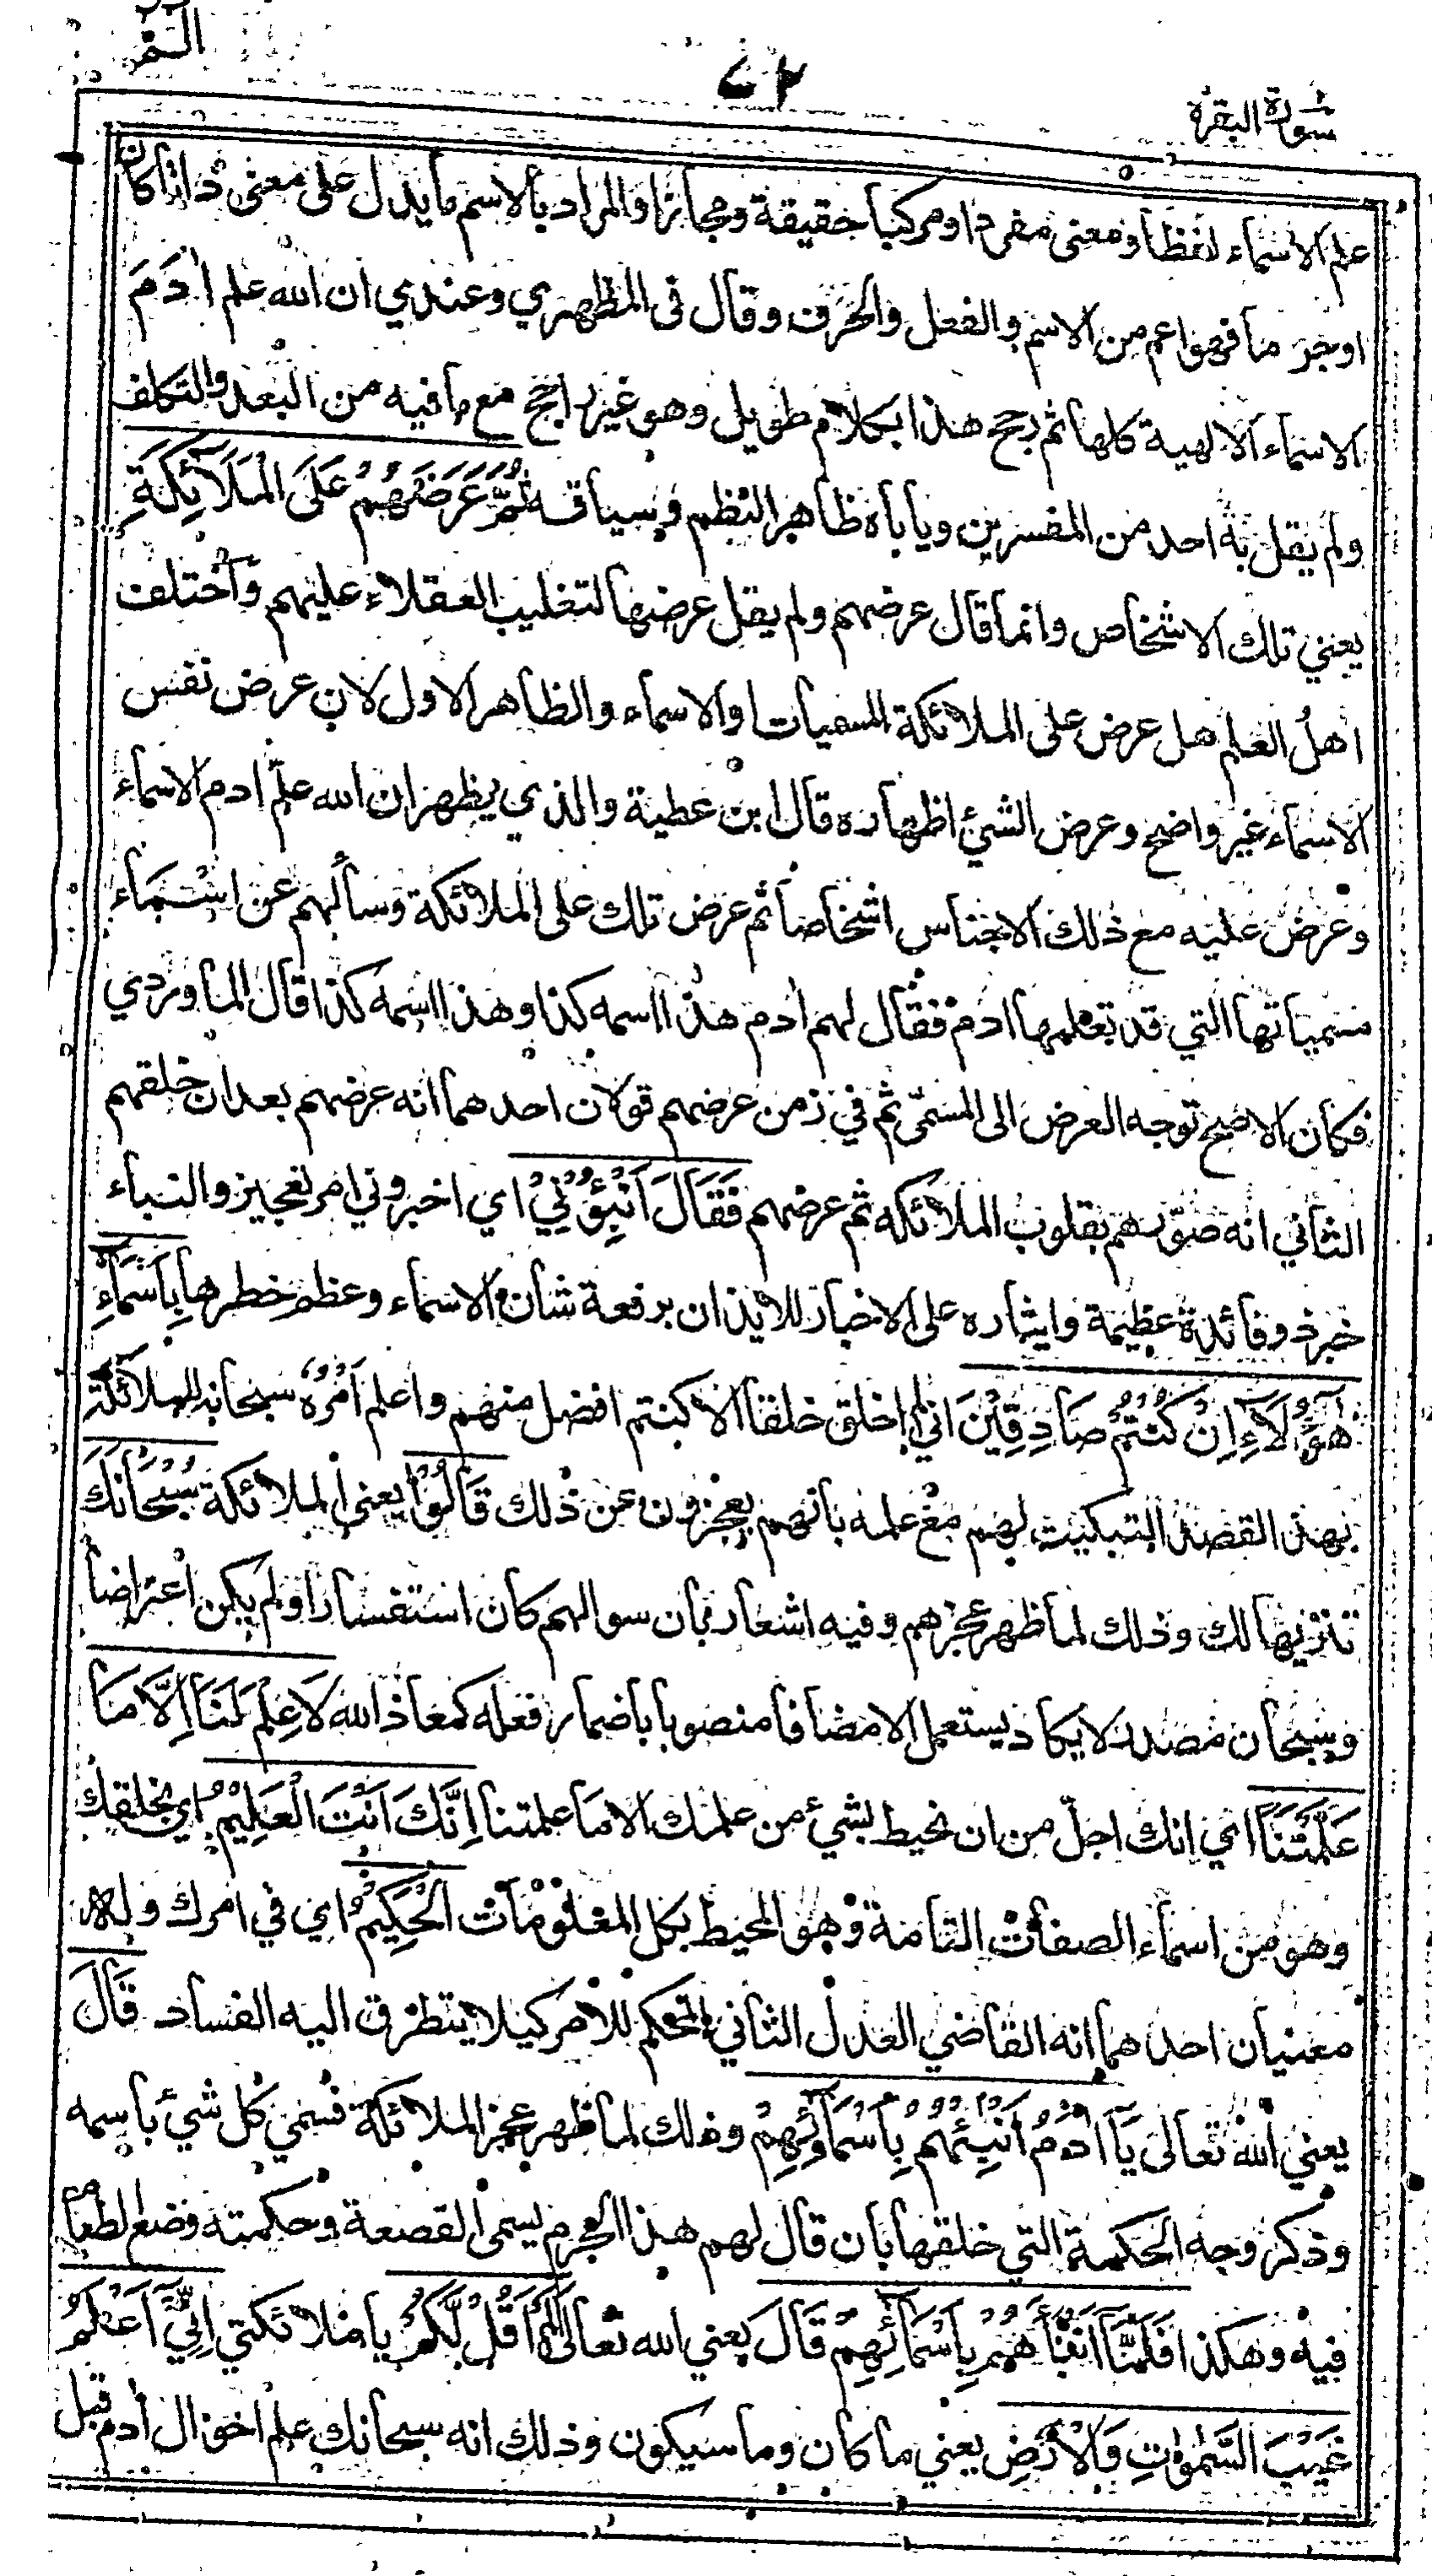 الم
٧٢
سورة البقرة
علم الاسماء لفظا ومعنى مفردا ومركبا حقيقة ومجازا والمراد بالاسم ما يدل على معنى ذاتا كان
او جرما فهو اعم من الاسم والفعل والحرف وقال فى المظهري وعندي ان الله علم ادم
الاسماء الالهية كلها ثم رجح هذا بكلام طويل وهو غير راجح مع ما فيه من البعد والتكلف
ولم يقل به احد من المفسرين ويأباه ظاهر النظم وسياقه ثُمَّ عَرَضَهُمْ عَلَى الْمَلَآئِكَةِ
يعني تلك الاشخاص وانما قال عرضهم ولم يقل عرضها لتغليب العقلاء عليهم واختلف
اهل العلم هل عرض على الملائكة المسميات او الاسماء والظاهر الاول لان عرض نفس
الاسماء غير واضح وعرض الشئ اظهاره قال ابن عطية والذي يظهر ان الله علّم ادم الاسماء
وعرض عليه مع ذلك الاجناس اشخاصا ثم عرض تلك على الملائكة وسألهم عن اسماء
مسمياتها التي قد تعلمها ادم فقال لهم ادم هذا اسمه كذا وهذا اسمه كذا قال الماوردي
فكان الاصح توجه العرض الى المسمّى ثم في زمن عرضهم قولان احدهما انه عرضهم بعد ان خلقهم
الثاني انه صوّرهم بقلوب الملائكة ثم عرضهم فَقَالَ اَنْبِئُوْنِيْ اي اخبروني امر تعجيز والنباء
خبر ذو فائدة عظيمة وايثاره على الاخبار للايذان برفعة شأن الاسماء وعظم خطرها بِاَسْمَآءِ
هٰٓؤُلَآءِ اِنْ كُنْتُمْ صَادِقِيْنَ اني لم اخلق خلقا الا كنتم افضل منهم واعلم امره سبحانه للملائكة
بهذه القصة التبكيت لهم مع علمه بانهم يعجزون عن ذلك قَالُوْا يعني الملائكة سُبْحَانَكَ
تنزيها لك وذلك لما ظهر عجزهم وفيه اشعار بان سوالهم كان استفسارا ولم يكن اعتراضا
وسبحان مصدر لا يكاد يستعمل الا مضافا منصوبا باضمار فعله كمعاذ الله لَا عِلْمَ لَنَا اِلَّا مَا
عَلَّمْتَنَا اي انك اجلّ من ان نحيط بشئ من علمك الا ما علمتنا اِنَّكَ اَنْتَ الْعَلِيْمُ اي بخلقك
وهو من اسماء الصفات التامة وهو المحيط بكل المعلومات الْحَكِيْمُ اي في امرك وله
معنيان احدهما انه القاضي العدل الثاني المحكم للامر كيلا يتطرق اليه الفساد قَالَ
يعني الله تعالى يَآ اٰدَمُ اَنْبِئْهُمْ بِاَسْمَآئِهِمْ وذلك لما ظهر عجز الملائكة فسمي كل شئ باسمه
وذكر وجه الحكمة التي خلقها بان قال لهم هذا الجرم يسمى القصعة وحكمته وضع الطعام
فيه وهكذا فَلَمَّآ اَنْبَأَهُمْ بِاَسْمَآئِهِمْ قَالَ يعني الله تعالى اَلَمْ اَقُلْ لَّكُمْ يا ملائكتي اِنِّيْٓ اَعْلَمُ
غَيْبَ السَّمٰوٰتِ وَالْاَرْضِ يعني ما كان وما سيكون وذلك انه سبحانك علم احوال ادم قبل